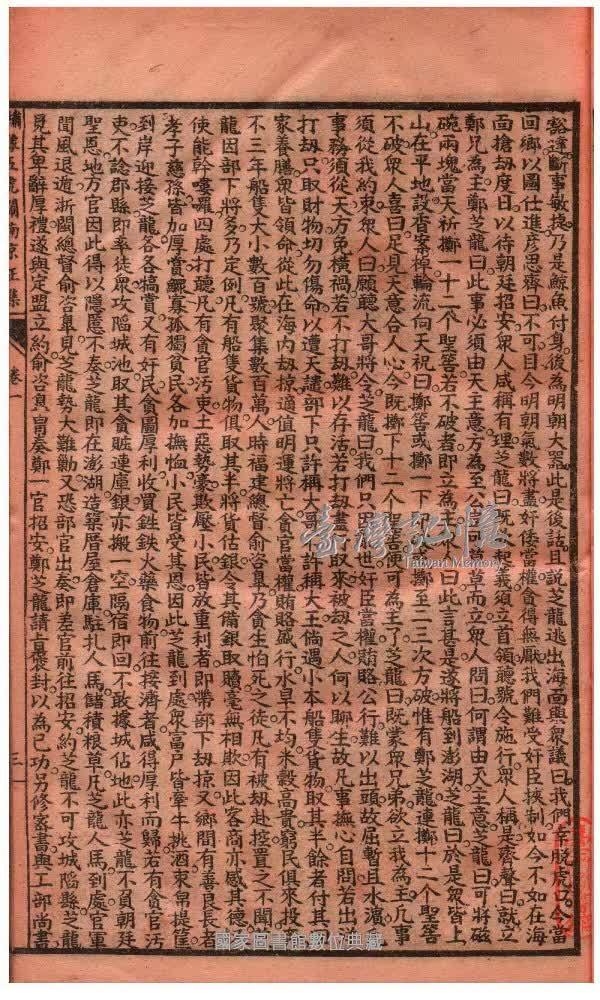 豁達斷事敏捷乃是鯨魚付身後為明朝大器此是後話且說芝龍逃出海面與眾議曰我們幸脫虎口今當
回鄉以圖仕進彥思齊曰不可目今明朝氣數將盡奸倭當權貪得無厭我們難受奸臣挾制如今不如在海
面搶刼度日以待朝廷招安眾人咸稱有理芝龍曰既欲起義須立首領聽號令施行眾人稱是齊聲曰就立
鄭兄為主鄭芝龍曰此事必須由天主意方為至公豈可草草而立眾人問曰何謂由天主意芝龍曰可將磁
碗兩塊當天祈擲一十二個聖筶若不破者即立為主眾曰此言甚是遂將船到澎湖芝龍曰於是眾皆上
山在平地設香案棹輪流向天祝曰擲筶或擲一下擲至二三次方破惟有鄭芝龍連擲十二個聖筶
不破眾人喜曰足見天意合人心今既擲下十二個聖筶便可為主了芝龍曰既蒙眾兄弟欲立我為主凡事
須從我約束眾人曰願聽大哥將令芝龍曰我們只因倭也奸臣當權賄賂公行難以出頭故屈暫且水滸
事務須從天方免橫禍若不打刼難以存活若打刼盡取來被刼之人何以聊生故凡事撫心自問若出
打刼只取財物切勿傷命以遭天譴部下只許稱大哥不許稱大王倘遇小本船隻貨物取其半餘者付其
家養膳眾皆領命從此在海內刼掠適值明運將亡貪官當權賄賂盛行水旱不均米穀高貴窮民俱來投
不三年船隻大小數百號聚集數百萬人時福建總督俞咨皐乃貪生怕死之徒凡有被刼赴控置之不聞
龍因部下將多乃定例凡有船隻貨物俱取其半將貨估銀令其備銀取贖毫無相欺因此客商亦感其德
使能幹嘍囉四處打聽凡有貪官汚吏土惡勢豪欺壓小民皆放重利者即帶部下刼掠又鄉間有善良長者
孝子慈孫皆加厚賞鰥寡孤獨貧民各加撫恤小民皆受其恩因此芝龍到處眾富戶皆牽牛挑酒束帛提筐
到岸迎接芝龍各各犒賞又有奸民貪圖厚利收買鉎鉄火藥食物前往接濟者咸得厚利而歸若有貪官汚
吏不諗郡縣即率徒眾攻陷城池取其貪賍連庫銀亦搬一空隔宿即回不敢據城佔地此亦芝龍不負朝廷
聖恩地方官因此得以隱慝不奏芝龍即在澎湖造築厝屋倉庫駐扎人馬儲積粮草凡芝龍人馬到處官軍
聞風退避浙閩總督俞咨皐見芝龍勢大難勦又恐部官出奏即差官前往招安約芝龍不可攻城陷縣芝龍
覓其卑辭厚禮遂與定盟立約俞咨皐甯奏鄭一官招安鄭芝龍請旨褒封以為己功另修密書與工部尚書
卷一
三
臺灣記憶
Taiwan Memory
國家圖書館數位典藏